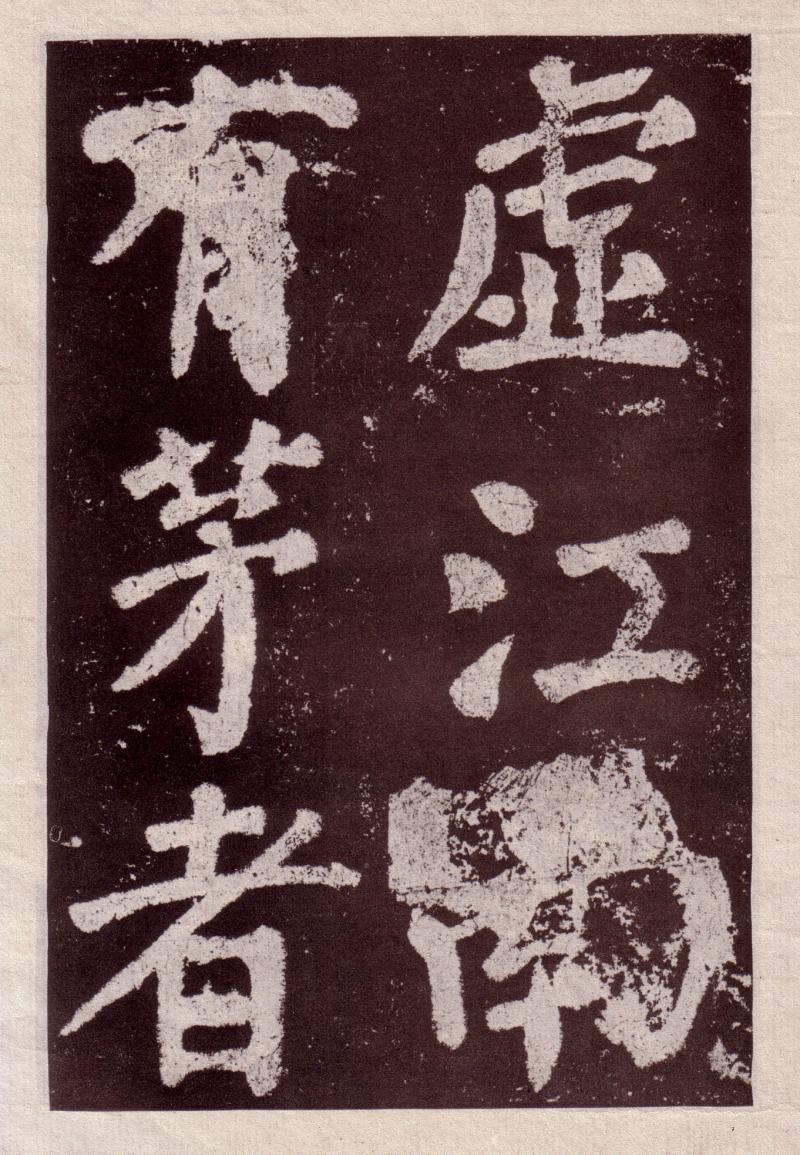 虛江南
有茅者